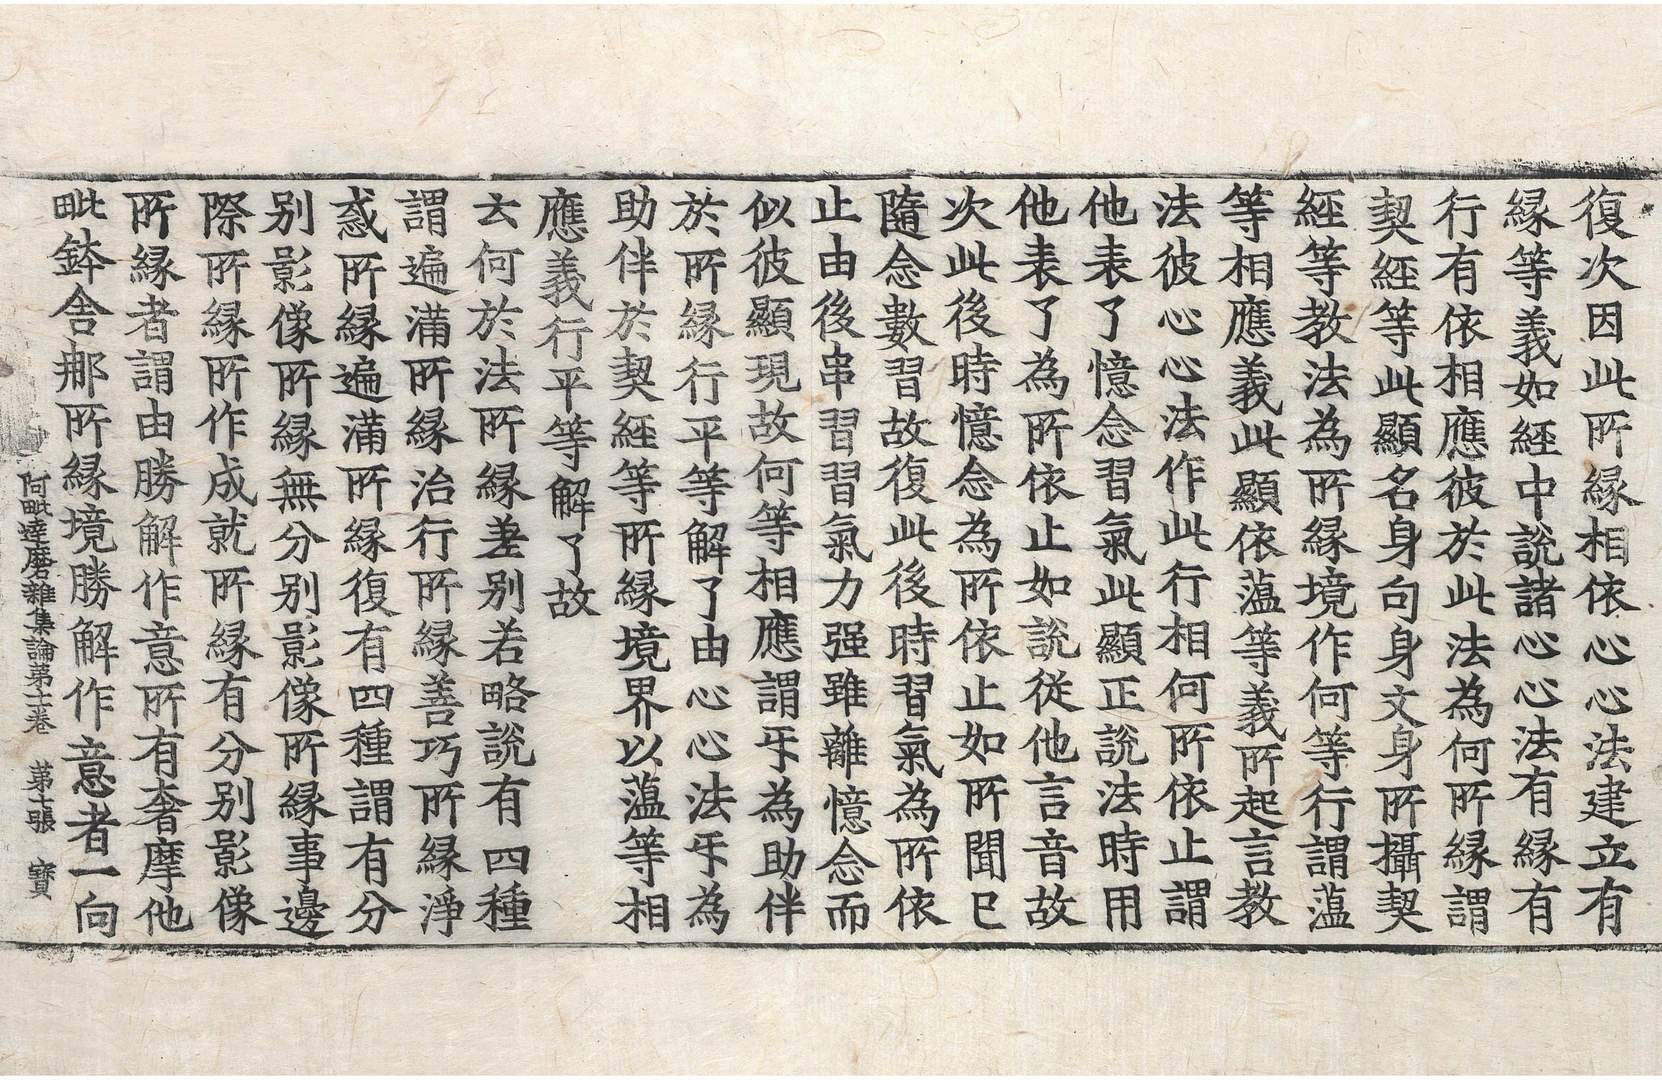 復次因此所縁相依心心法建立有
縁等義如經中說諸心心法有縁有
行有依相應彼於此法為何所縁謂
契經等此顯名身句身文身所攝契
經等教法為所縁境作何等行謂薀
等相應義此顯依薀等義所起言教
法彼心心法作此行相何所依止謂
他表了憶念習氣此顯正說法時用
他表了為所依止如說從他言音故
次此後時憶念為所依止如所聞已
隨念數習故復此後時習氣為所依
止由後串習習氣力强雖離憶念而
似彼顯現故何等相應謂㸦為助伴
於所縁行平等解了由心心法㸦為
助伴於契經等所縁境界以薀等相
應義行平等解了故
云何於法所縁差别若略說有四種
謂遍滿所縁治行所縁善巧所縁淨
惑所縁遍滿所縁復有四種謂有分
别影像所縁無分别影像所縁事邊
際所縁所作成就所縁有分别影像
所縁者謂由勝解作意所有奢摩他
毗鉢舍那所縁境勝解作意者一向
阿毗達磨雜集論第十一卷 第十張 寶